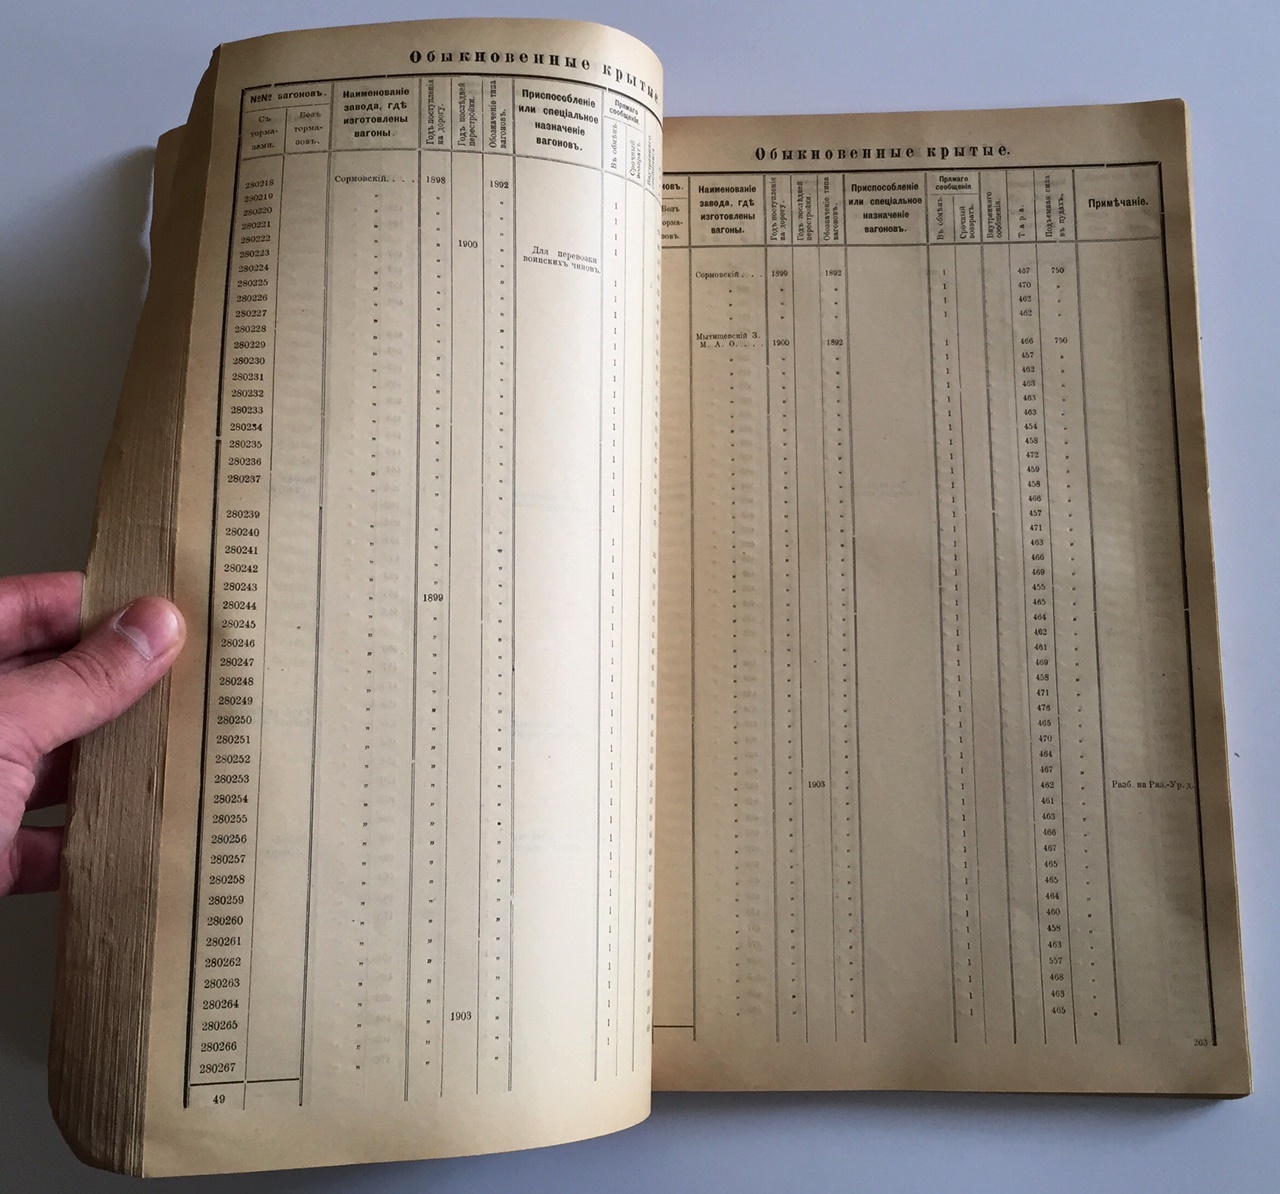 Обыкновенные крытые
№№ вагоновъ.
Съ тормазами.
Безъ тормазовъ.
Наименованіе завода, гдѣ изготовлены вагоны.
Годъ поступленія на дорогу.
Годъ послѣдней перестройки.
Обозначеніе типа вагоновъ.
Приспособленіе или спеціальное назначеніе вагоновъ.
Прямаго сообщенія.
Въ обмѣнъ.
Срочный возвратъ.
280218 Сормовскій. . . . 1898 1892
280219 „ „ „ 1
280220 „ „ „ 1
280221 „ „ „ 1
280222 „ „ 1900 „ 1
280223 „ „ „ Для перевозки воинскихъ чиновъ.
280224 „ „ „
280225 „ „ „ 1
280226 „ „ „ 1
280227 „ „ „ 1
280228 „ „ „ 1
280229 „ „ „ 1
280230 „ „ „ 1
280231 „ „ „ 1
280232 „ „ „ 1
280233 „ „ „ 1
280234 „ „ „ 1
280235 „ „ „ 1
280236 „ „ „ 1
280237 „ „ „ 1
280239 „ „ „ 1
280240 „ „ „ 1
280241 „ „ „ 1
280242 „ „ „ 1
280243 „ „ „ 1
280244 „ 1899 „ 1
280245 „ „ „ 1
280246 „ „ „ 1
280247 „ „ „ 1
280248 „ „ „ 1
280249 „ „ „ 1
280250 „ „ „ 1
280251 „ „ „ 1
280252 „ „ „ 1
280253 „ „ „ 1
280254 „ „ „ 1
280255 „ „ „ 1
280256 „ „ „ 1
280257 „ „ „ 1
280258 „ „ „ 1
280259 „ „ „ 1
280260 „ „ „ 1
280261 „ „ „ 1
280262 „ „ „ 1
280263 „ „ „ 1
280264 „ „ „ 1
280265 „ „ 1903 „ 1
280266 „ „ „ 1
280267 „ „ „
49
Обыкновенные крытые.
Наименованіе завода, гдѣ изготовлены вагоны.
Годъ поступленія на дорогу.
Годъ послѣдней перестройки.
Обозначеніе типа вагоновъ.
Приспособленіе или спеціальное назначеніе вагоновъ.
Прямаго сообщенія
Въ обмѣнъ.
Срочный возвратъ.
Внутренняго сообщенія.
Тара.
Подъемная сила въ пудахъ.
Примѣчаніе.
Сормовскій . . . 1899 1892 1 457 750
„ „ „ 1 470 „
„ „ „ 1 462 „
„ „ „ 1 462 „
Мытищевскій З.
М. А. О. . . . 1900 1892 1 466 750
„ „ „ 1 457 „
„ „ „ 1 462 „
„ „ „ 1 463 „
„ „ „ 1 463 „
„ „ „ 1 463 „
„ „ „ 1 454 „
„ „ „ 1 458 „
„ „ „ 1 472 „
„ „ „ 1 459 „
„ „ „ 1 458 „
„ „ „ 1 466 „
„ „ „ 1 457 „
„ „ „ 1 471 „
„ „ „ 1 463 „
„ „ „ 1 466 „
„ „ „ 1 469 „
„ „ „ 1 455 „
„ „ „ 1 465 „
„ „ „ 1 464 „
„ „ „ 1 462 „
„ „ „ 1 461 „
„ „ „ 1 469 „
„ „ „ 1 458 „
„ „ „ 1 471 „
„ „ „ 1 476 „
„ „ „ 1 465 „
„ „ „ 1 470 „
„ „ „ 1 464 „
„ „ „ 1 467 „
„ „ 1903 „ 1 462 „ Разб. на Ряз.-Ур. д.
„ „ „ 1 461 „
„ „ „ 1 463 „
„ „ „ 1 466 „
„ „ „ 1 467 „
„ „ „ 1 465 „
„ „ „ 1 465 „
„ „ „ 1 464 „
„ „ „ 1 460 „
„ „ „ 1 458 „
„ „ „ 1 463 „
„ „ „ 1 557 „
„ „ „ 1 468 „
„ „ „ 1 463 „
„ „ „ 1 465 „
263